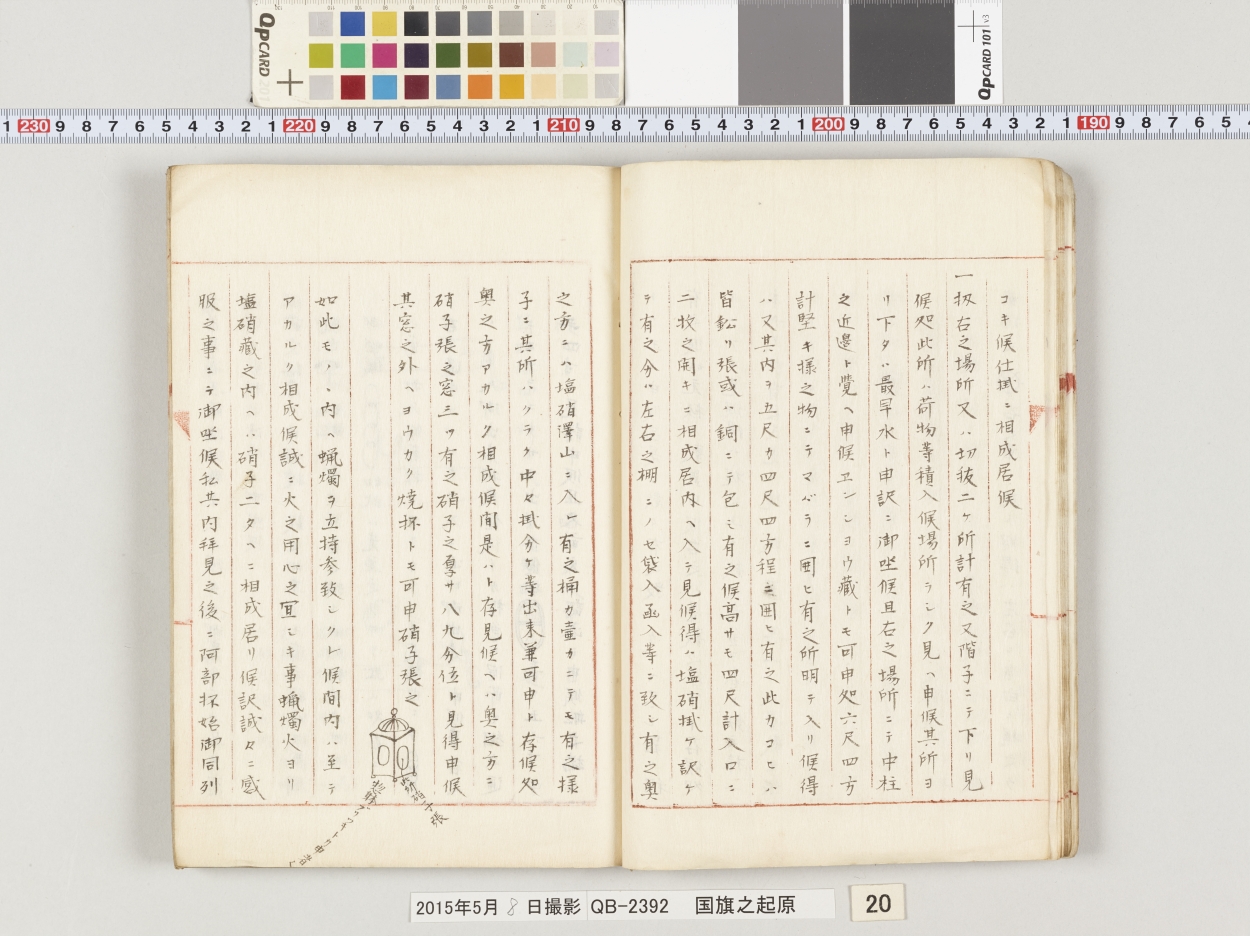 コキ候仕掛ニ相成居候
一扨右之場所又ハ切抜二ケ所計有之又階子ニテ下リ見
候処此所ハ荷物等積入候場所ラシク見ヘ申候其所ヨ
リ下タハ最早水ト申訳ニ御坐候且右之場所ニテ中柱
之近邊ト覚ヘ申候ヱンシヨウ藏トモ可申処六尺四方
計堅キ様之物ニテマバラニ囲ヒ有之所明テ入リ候得
ハ又其内ヲ五尺カ四尺四方程ニ囲ヒ有之此カコヒハ
皆鉛リ張或ハ銅ニテ包ミ有之候高サモ四尺計入口ニ
二枚之開キニ相成居内ヘ入テ見候得ハ塩硝掛ケ訳ケ
テ有之分ハ左右之棚ニノセ袋入函入等ニ致シ有之奥
之方ニハ塩硝澤山ニ入レ有之桶カ壷カニテモ有之様
子ニ其所ハクラク中々掛分ケ等出来兼可申ト存候処
奥之方アカルク相成候間是ハト存見候ヘハ奥之方ニ
硝子張之窓三ツ有之硝子之厚サ八九分位ト見得申候
其窓之外ヘヨウカク燒抔トモ可申硝子張之
如此モノヽ内ヘ蝋燭ヲ立持参致シクレ候間内ハ至テ
アカルク相成候誠ニ火之用心之冝シキ事蝋燭火ヨリ
塩硝藏之内ヘハ硝子二タヘニ相成居リ候訳誠々ニ感
服之事ニテ御坐候私共内拝見之後ニ阿部抔始御同列
2015年5月8日撮影 QB-2392 国旗之起原
20
QPCARD 201
QPCARD 101 v3
1 230 9 8 7 6 5 4 3 2 1 220 9 8 7 6 5 4 3 2 1 210 9 8 7 6 5 4 3 2 1 200 9 8 7 6 5 4 3 2 1 190 9 8 7 6 5